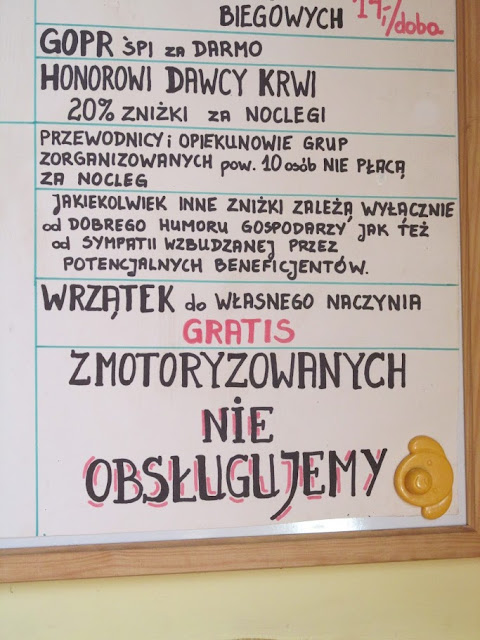 BIEGOWYCH 14,-/doba
GOPR ŚPI za DARMO
HONOROWI DAWCY KRWI
20% ZNIŻKI za NOCLEGI
PRZEWODNICY i OPIEKUNOWIE GRUP
ZORGANIZOWANYCH pow. 10 osób NIE PŁACĄ
ZA NOCLEG
JAKIEKOLWIEK INNE ZNIŻKI ZALEŻĄ WYŁĄCZNIE
od DOBREGO HUMORU GOSPODARZY JAK TEŻ
od SYMPATII WZBUDZANEJ PRZEZ
POTENCJALNYCH BENEFICJENTÓW.
WRZĄTEK do WŁASNEGO NACZYNIA
GRATIS
ZMOTORYZOWANYCH
NIE
OBSŁUGUJEMY